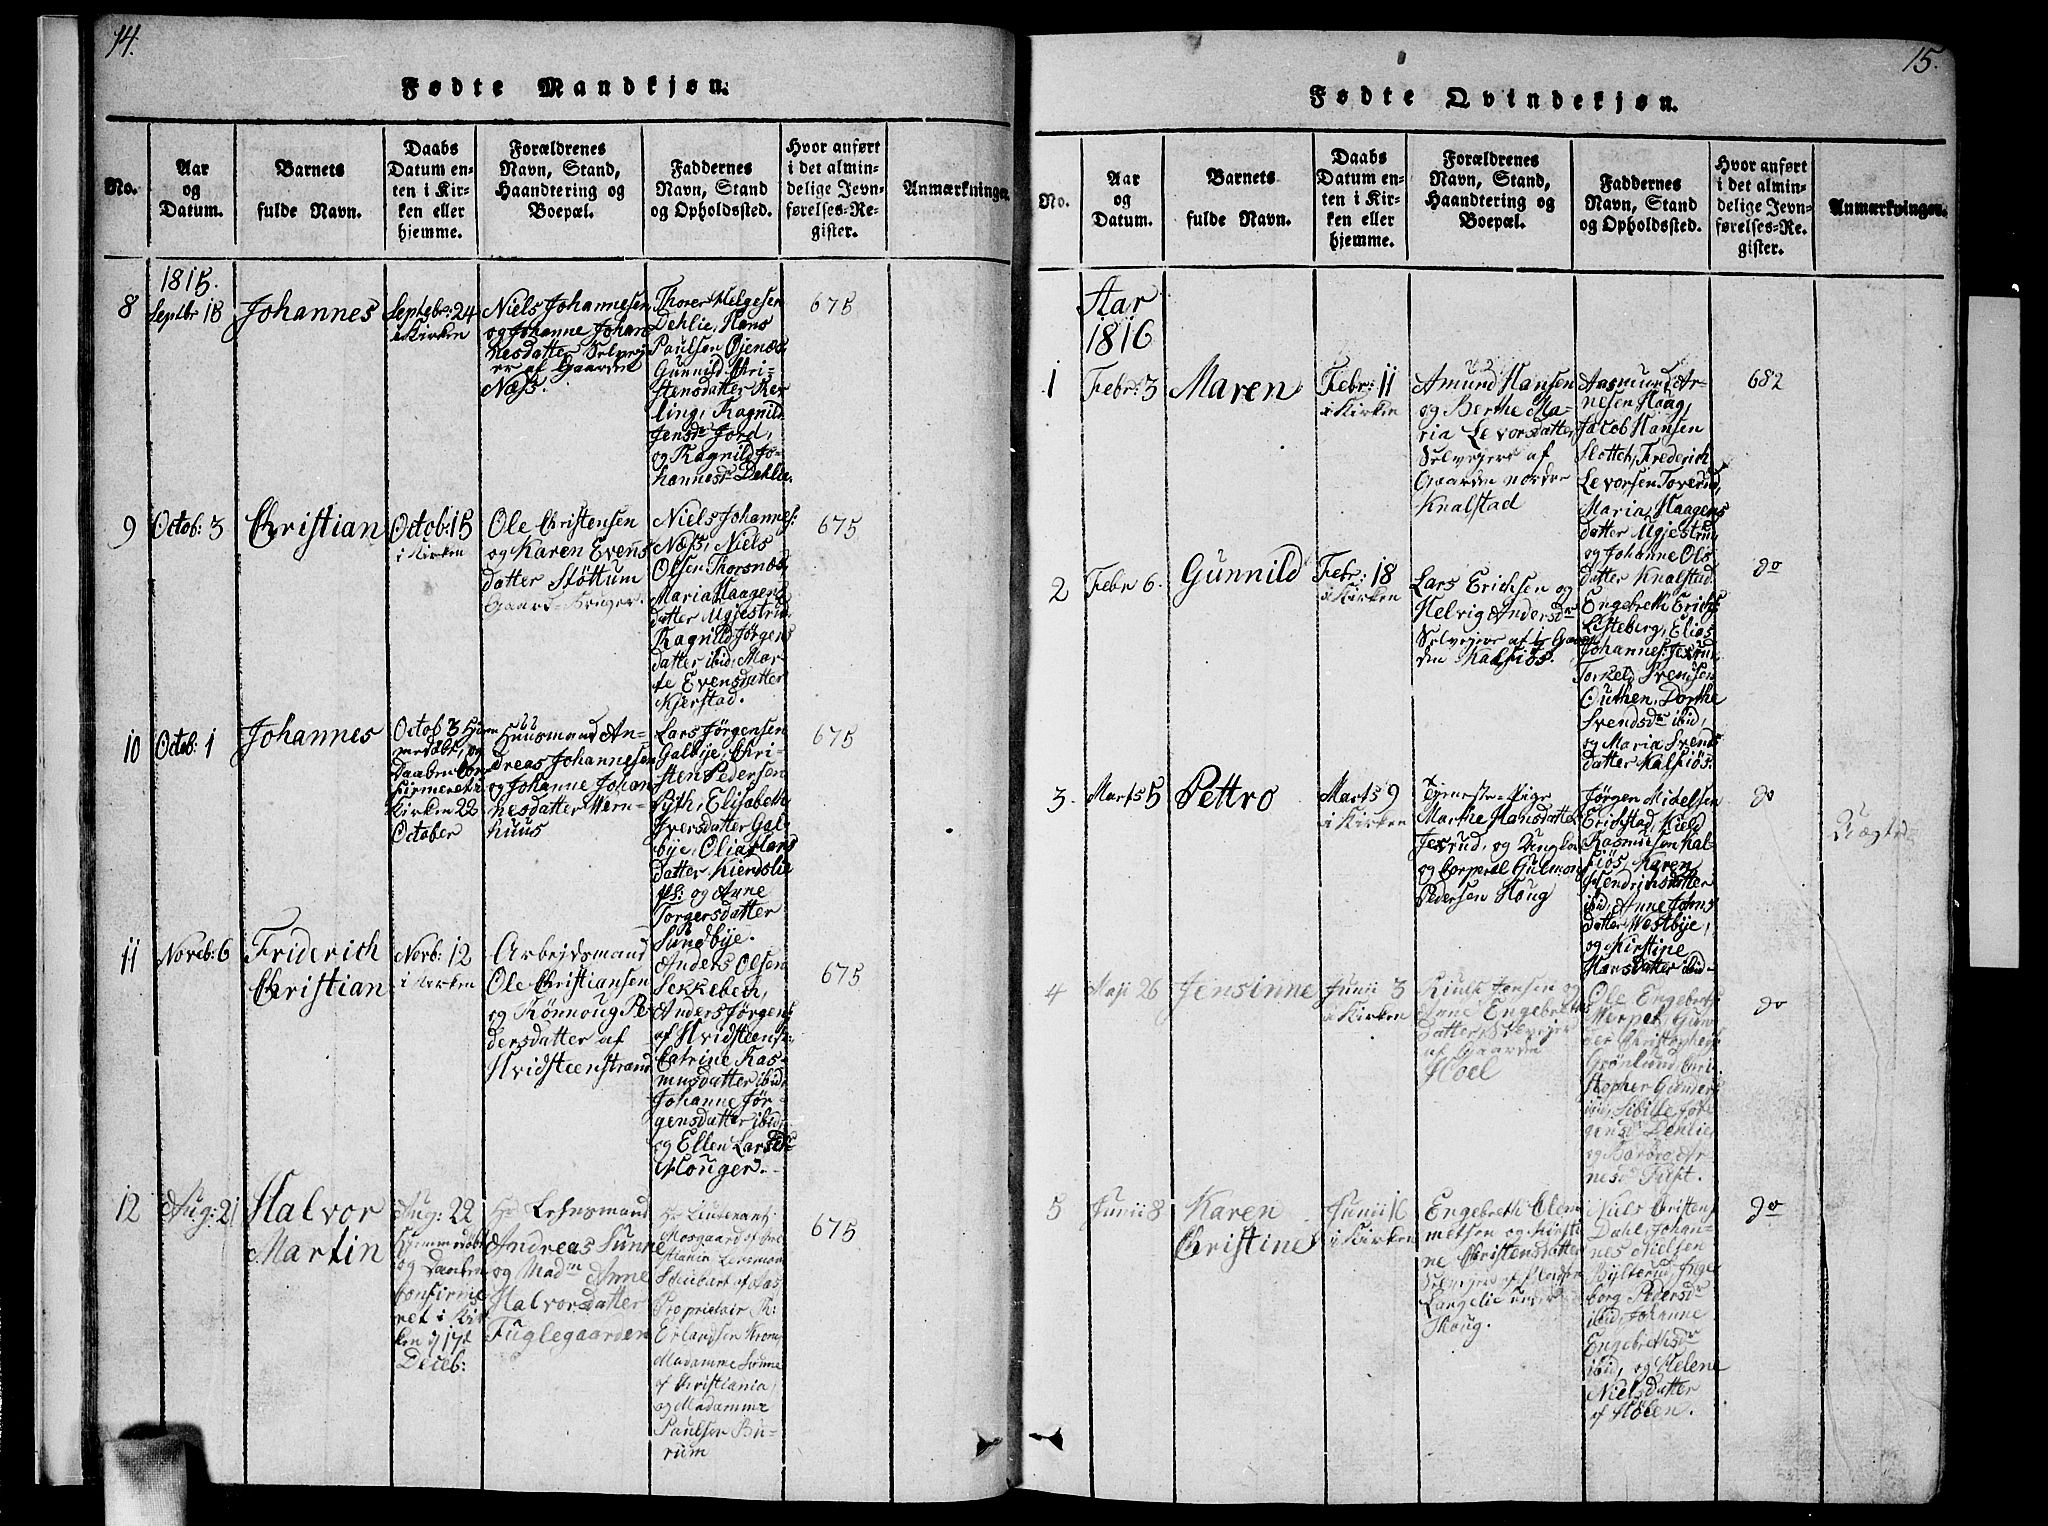 14.
Fødte Mandkjøn.
No.
Aar
og
Datum.
Barnets
fulde Navn.
Daabs
Datum en-
ten i Kir-
ken eller
hjemme.
Forældrenes
Navn, Stand,
Haandtering og
Boepæl.
Faddernes
Navn, Stand
og Opholdssted.
Hvor anført
i det almin-
delige Jevn-
førelses-Re-
gister.
Anmærkninger.
1815.
8
Septbr 18
Johannes
Septebr: 24
i Kirken
Niels Johannesen
og Johanne Johan
nesdatter Selvej
er af Gaarden
Næss.
Thorer Helgesen
Dehlie, Hans
Paulsen Øjenæs
Gunnild Chri-
stensdatter Ker
ling, Ragnild
Jensdr Jord,
og Ragnild Jo-
hannesdr Dehlie.
675
9
Octob: 3
Christian
Octob: 15
i Kirken
Ole Christensen
og Karen Evens
datter Støttum
Gaard-Bruger.
Niels Johannes:
Næss, Niels
Olsen Thorsnæs
Maria Haagens
datter Mjestrud
Ragnild Jørgens
datter ibid, Mar-
te Evensdatter
Kjerstad.
675
10
Octob: 1
Johannes
Octob 3 Hjem
medøbt, og
Daaben Con
firmeret i
Kirken 22
October
Huusmand An-
dreas Johannesen
og Johanne Johan
nesdatter Wern-
huus
Lars Jørgensen
Galbye, Chri-
sten Pedersen
Pyth, Elisabeth
Iversdatter Gal-
bye, Olia Lars
datter Kiendslie
og Anne
Torgersdatter
Sundbye.
675
11
Noveb: 6
Friderich
Christian
Norb: 12
i Kirken
Arbejdsmand
Ole Christiansen
og Rønnoug Pe
dersdatter af
Hvidsteenstrand
Anders Olsen
Sekkebek,
Anders Jørgens:
af Hvidsteen
Catrine Ras-
musdatter ibid,
Johanne Jør-
gensdatter ibid
og Ellen Lars
Houger.
675
12
Aug: 21
Halvor
Martin
Aug: 22
Hjemmedøbt
og Daaben
Confirme
ret i Kir
ken d 17de
Deceb:
Hr Lehnsmand
Andreas Sunne
og Madm Anne
Halvorsdatter
Fuglegaarden
Hr Lieutenant
Mosgaard af Chri
stiania Lensmand
Scheibart af Aas
Proprietair Th:
Erlandsen Krom,
Madamme Sunne
af Christiania,
og Madamme
Paulsen Bu-
rum
675
15.
Fødte Qvindekjøn.
No.
Aar
og
Datum.
Barnets
fulde Navn.
Daabs
Datum en-
ten i Kir-
ken eller
hjemme.
Forældrenes
Navn, Stand,
Haandtering og
Boepæl.
Faddernes
Navn, Stand
og Opholdssted.
Hvor anført
i det almin-
delige Jevn-
førelses-Re-
gister.
Anmærkninger.
Aar
1816
1
Febr: 3
Maren
Febr: 11
i Kirken
Amund Hansen
og Berthe Ma-
ria Levorsdatter,
Selvejere af
Gaarden nordre
Knalstad
Aasmund Ar-
nesen Houg,
Jacob Hansen
Slottet, Frederich
Levorsen Toverud,
Maria Haagens
datter Mjestrud
og Johanne Ols
datter Knalstad.
682
2
Febr 6.
Gunnild
Febr: 18
i Kirken
Lars Erichsen og
Helvig Andersdr
Selvejere af ½ Gaar
den Kalsiøs.
Engebreth Erichs
Listeberg, Elias
Johannes: Jexrud
Torkeld Svendsen
Outhen, Dorthe
Svendsdr ibid,
og Maria Svends
datter Kalsiøs.
do
3.
Marts 5
Pettro
Marts 9
i Kirken
Tjeneste-Pige
Marthe Hansdatter
Jexrud, og Ungkar
og Corperal Gulmon
Pedersen Houg
Jørgen Mickelsen
Erichstad, Kield
Rasmusen Kal-
siøs, Karen
Hendrichsdatter
ibid, Anne Johns
datter Westbye,
og Kirstine
Hansdatter ibid-
do
Uægte
4
Maji 26
Jensinne
Junii 3
i Kirken
Kiulf Jensen og
Anne Engebreths
datter, Selvejer
af Gaarden
Hoel
Ole Engebreths:
Werpet, Gun-
der Christophers:
Grønlund, Chri
stopher Gunders:
ibid, Sibille Jør
gensdr Dehlie,
og Barbro Ar-
nesdr Tuft.
do
5
Junii 8
Karen
Christine
Junii 16
i Kirken
Engebreth Clem
metsen og Kirsti
ne Christensdatter
Selvejer af Pladsen
Langelie under
Houg.
Niels Christens:
Dahl, Johan-
nes Nielsen
Bylterud, Inge
borg Pedersdr
ibid, Johanne
Engebrethsdr
ibid, og Helene
Nielsdatter
af Hølen.
do